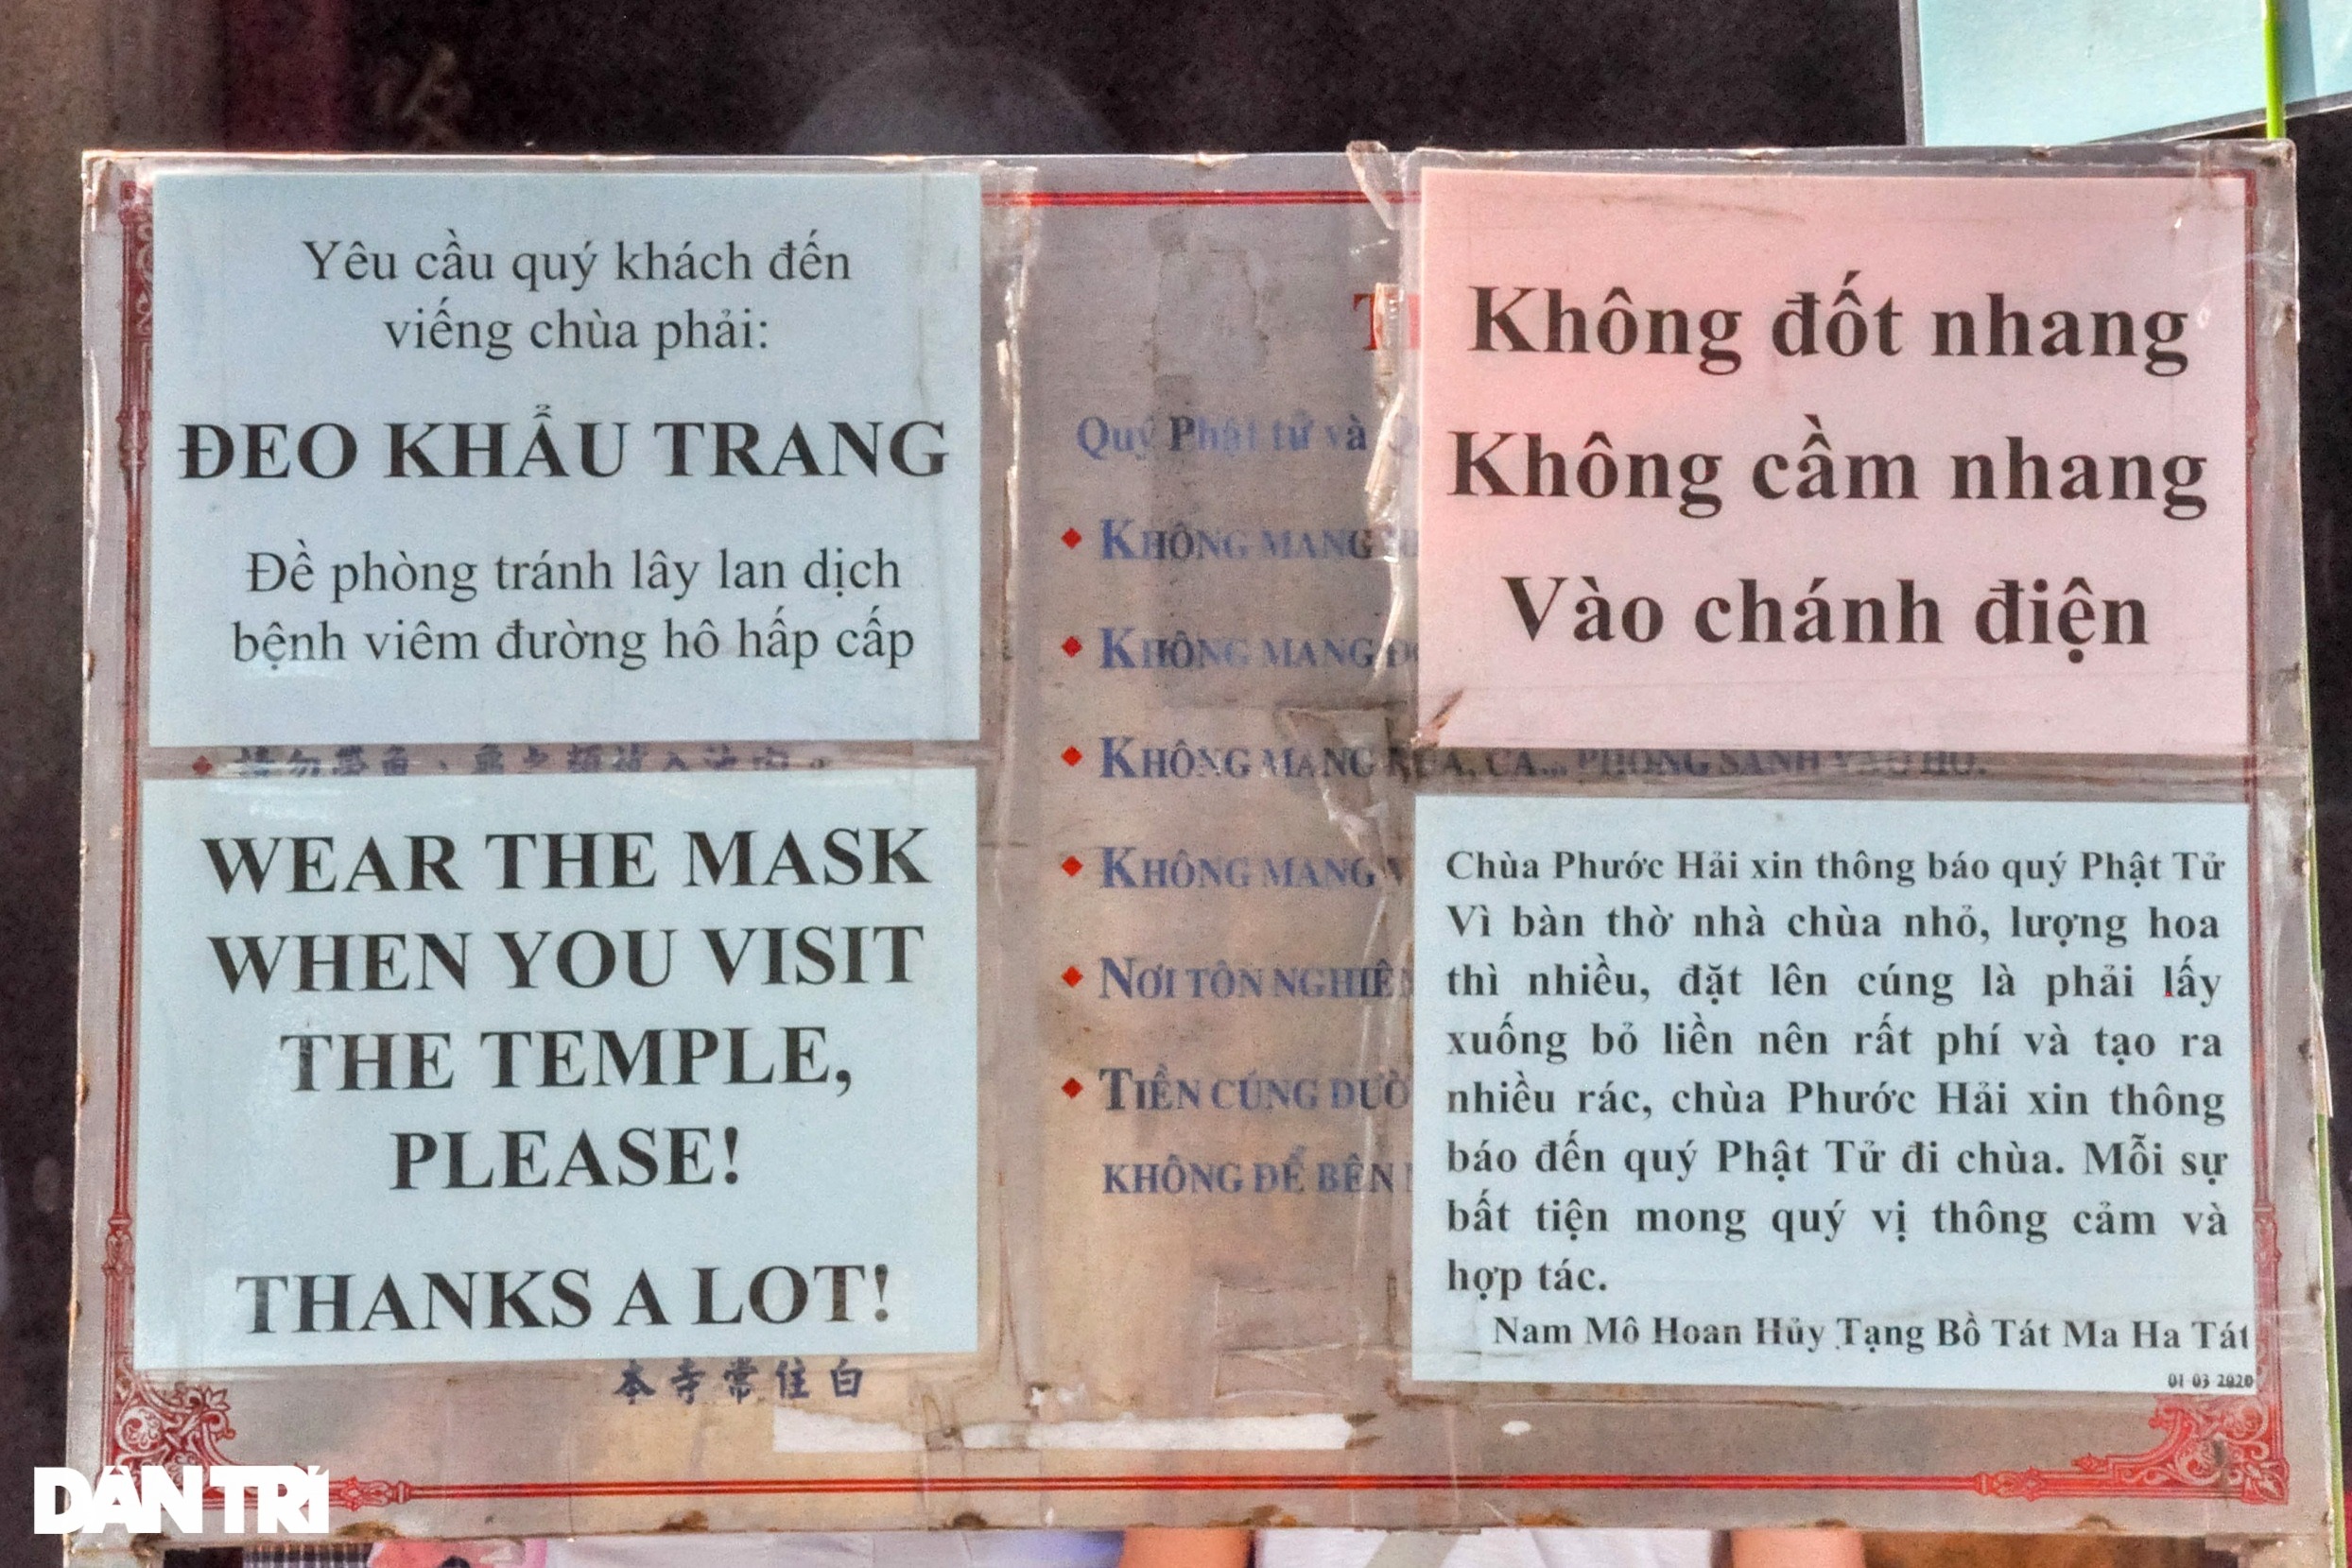 Yêu cầu quý khách đến
viếng chùa phải:
ĐEO KHẨU TRANG
Đề phòng tránh lây lan dịch
bệnh viêm đường hô hấp cấp
WEAR THE MASK
WHEN YOU VISIT
THE TEMPLE,
PLEASE!
THANKS A LOT!
本寺常住白
Quý Phật tử và
KHÔNG MANG
KHÔNG MANG
KHÔNG MANG RÙA, CÁ... PHÓNG SANH VÀO HỒ.
KHÔNG MANG
NƠI TÔN NGHIÊ
TIỀN CÚNG DƯỜ
KHÔNG ĐỂ BÊN
Không đốt nhang
Không cầm nhang
Vào chánh điện
Chùa Phước Hải xin thông báo quý Phật Tử
Vì bàn thờ nhà chùa nhỏ, lượng hoa
thì nhiều, đặt lên cúng là phải lấy
xuống bỏ liền nên rất phí và tạo ra
nhiều rác, chùa Phước Hải xin thông
báo đến quý Phật Tử đi chùa. Mỗi sự
bất tiện mong quý vị thông cảm và
hợp tác.
Nam Mô Hoan Hủy Tạng Bồ Tát Ma Ha Tát
01 03 2020
DÂN TRÍ